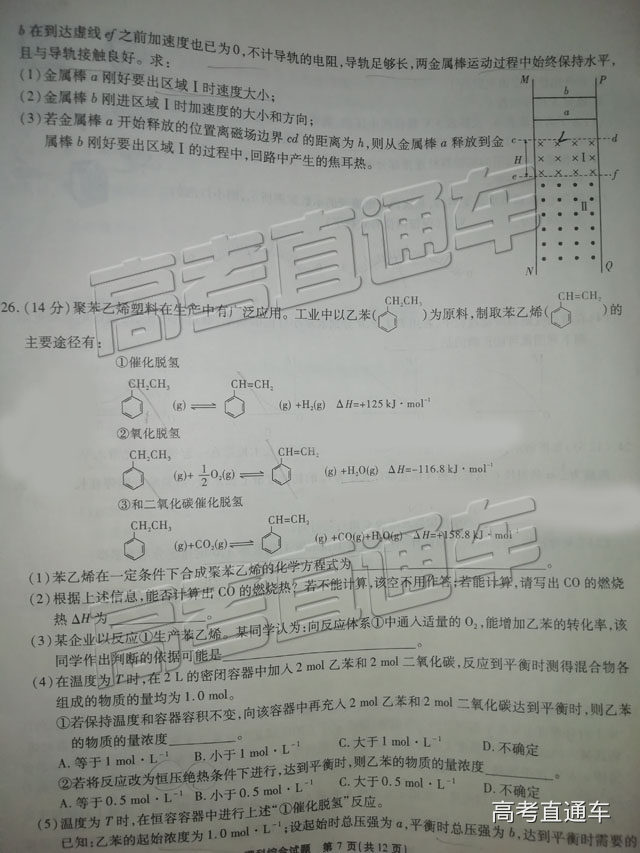 b在到达虚线ef之前加速度也已为0,不计导轨的电阻,导轨足够长,两金属棒运动过程中始终保持水平,
且与导轨接触良好。求:
(1)金属棒a刚好要出区域Ⅰ时速度大小;
(2)金属棒b刚进区域Ⅰ时加速度的大小和方向;
(3)若金属棒a开始释放的位置离磁场边界cd的距离为h,则从金属棒a释放到金
属棒b刚好要出区域Ⅰ的过程中,回路中产生的焦耳热。
M P
b
a
c d
H Ⅰ
e f
Ⅱ
N Q
高考直通车
26.(14分)聚苯乙烯塑料在生产中有广泛应用。工业中以乙苯(CH₂CH₃)为原料,制取苯乙烯(CH=CH₂)的
主要途径有:
①催化脱氢
CH₂CH₃ (g)⇌ CH=CH₂ (g)+H₂(g) ΔH=+125 kJ·mol⁻¹
②氧化脱氢
CH₂CH₃ (g)+1/2O₂(g)⇌ CH=CH₂ (g)+H₂O(g) ΔH=-116.8 kJ·mol⁻¹
③和二氧化碳催化脱氢
CH₂CH₃ (g)+CO₂(g)⇌ CH=CH₂ (g)+CO(g)+H₂O(g) ΔH=+158.8 kJ·mol⁻¹
高考直通车
(1)苯乙烯在一定条件下合成聚苯乙烯的化学方程式为。
(2)根据上述信息,能否计算出CO的燃烧热?若不能计算,该空不用作答;若能计算,请写出CO的燃烧
热ΔH为。
(3)某企业以反应①生产苯乙烯。某同学认为:向反应体系①中通入适量的O₂,能增加乙苯的转化率,该
同学作出判断的依据可能是。
(4)在温度为T时,在2 L的密闭容器中加入2 mol乙苯和2 mol二氧化碳,反应到平衡时测得混合物各
组成的物质的量均为1.0 mol。
①若保持温度和容器容积不变,向该容器中再充入2 mol乙苯和2 mol二氧化碳达到平衡时,则乙苯
的物质的量浓度。
A. 等于1 mol·L⁻¹ B. 小于1 mol·L⁻¹ C. 大于1 mol·L⁻¹ D. 不确定
②若将反应改为恒压绝热条件下进行,达到平衡时,则乙苯的物质的量浓度。
A. 等于0.5 mol·L⁻¹ B. 小于0.5 mol·L⁻¹ C. 大于0.5 mol·L⁻¹ D. 不确定
(5)温度为T时,在恒容容器中进行上述“①催化脱氢”反应。
已知:乙苯的起始浓度为1.0 mol·L⁻¹;设起始时总压强为a,平衡时总压强为b,达到平衡时需要的
综合试题 第7页(共12页)
高考直通车